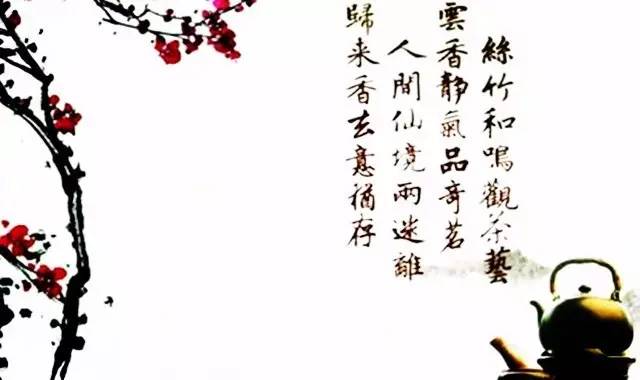 絲竹和鳴觀茶藝
雲香靜氣品奇茗
人間仙境兩迷離
歸来香去意猶存